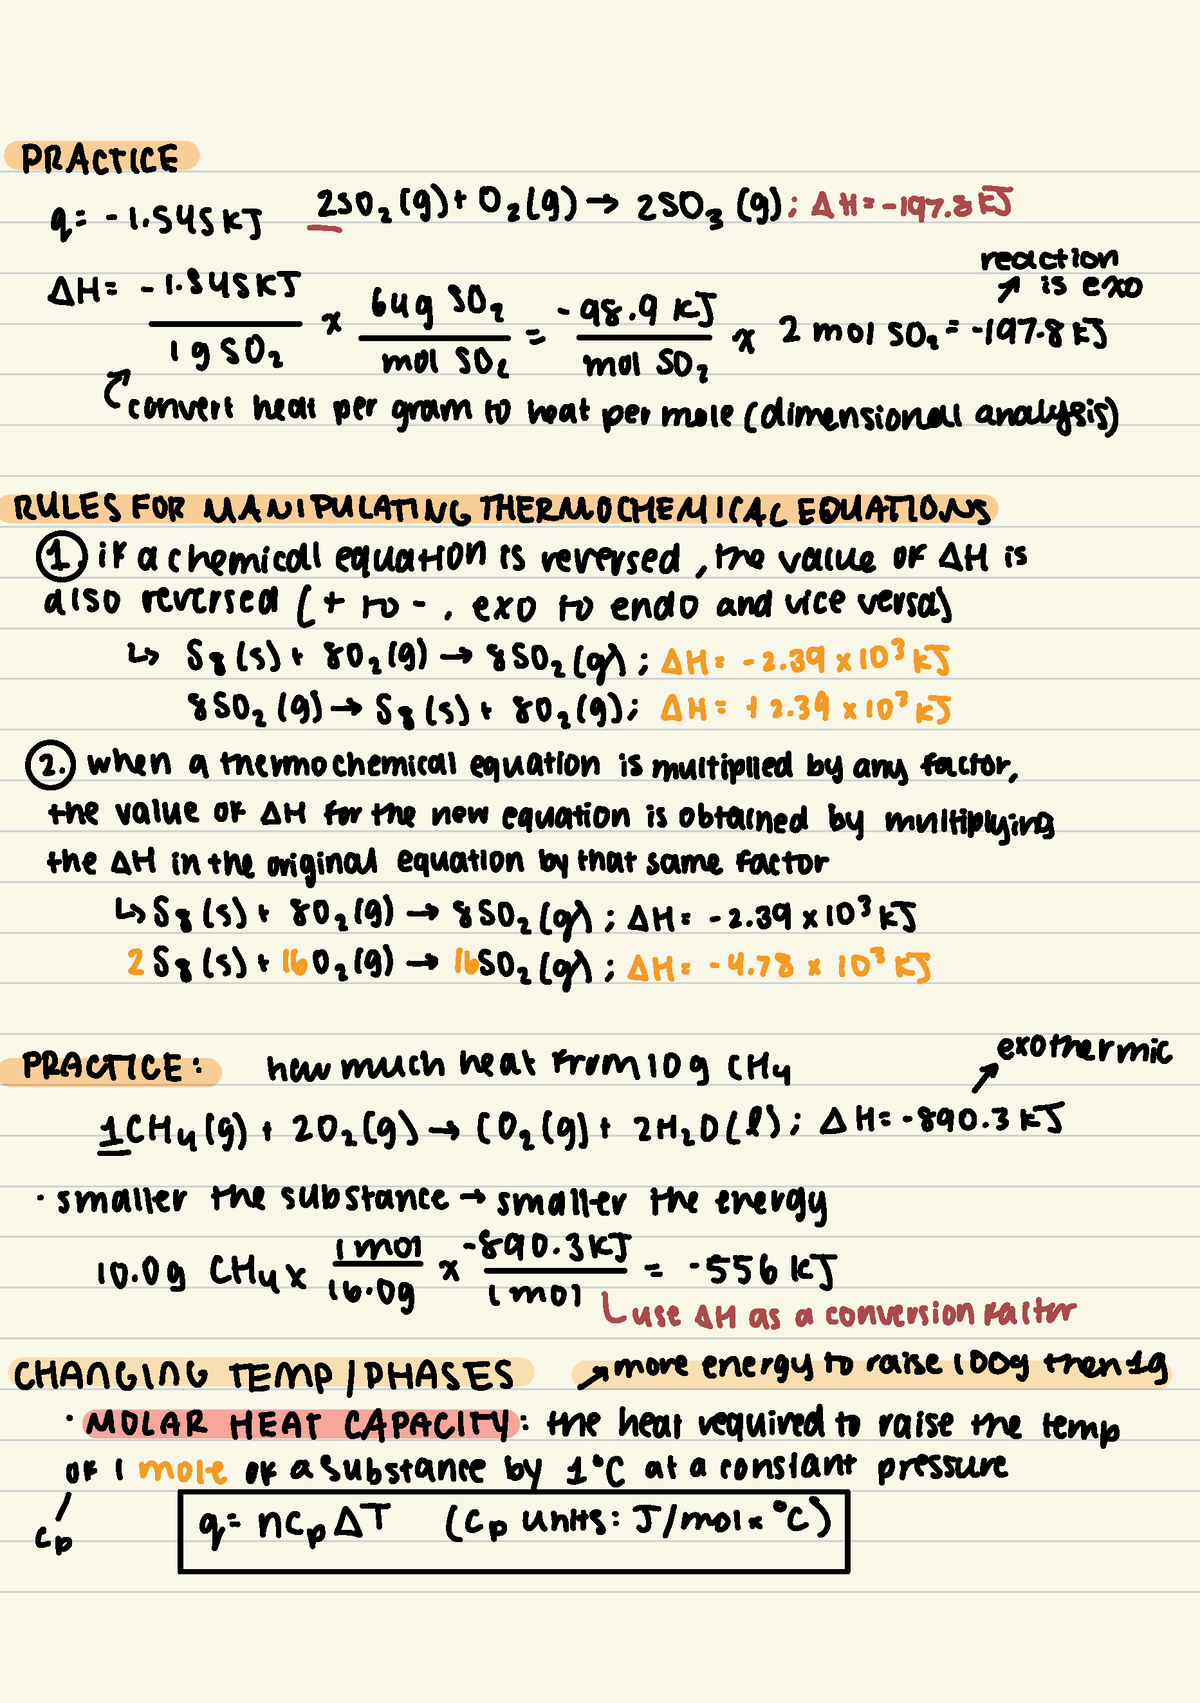 PRACTICE
q = -1.545 KJ 2SO₂(g) + O₂(g) → 2SO₃(g); ΔH = -197.8 KJ
reaction
is exo
ΔH = -1.545 KJ / 1g SO₂ x 64g SO₂ / mol SO₂ = -98.9 KJ / mol SO₂ x 2 mol SO₂ = -197.8 KJ
convert heat per gram to heat per mole (dimensional analysis)
RULES FOR MANIPULATING THERMOCHEMICAL EQUATIONS
1. if a chemical equation is reversed, the value of ΔH is
also reversed (+ to -, exo to endo and vice versa)
↳ S₈(s) + 8O₂(g) → 8SO₂(g); ΔH = -2.39 x 10³ KJ
8SO₂(g) → S₈(s) + 8O₂(g); ΔH = +2.39 x 10³ KJ
2. when a thermochemical equation is multiplied by any factor,
the value of ΔH for the new equation is obtained by multiplying
the ΔH in the original equation by that same factor
↳ S₈(s) + 8O₂(g) → 8SO₂(g); ΔH = -2.39 x 10³ KJ
2S₈(s) + 16O₂(g) → 16SO₂(g); ΔH = -4.78 x 10³ KJ
exothermic
PRACTICE: how much heat from 10g CH₄
1CH₄(g) + 2O₂(g) → CO₂(g) + 2H₂O(l); ΔH = -890.3 KJ
· smaller the substance → smaller the energy
10.0g CH₄ x 1 mol / 16.0g x -890.3 KJ / 1 mol = -556 KJ
use ΔH as a conversion factor
CHANGING TEMP/PHASES ↗ more energy to raise 100g then 1g
· MOLAR HEAT CAPACITY: the heat required to raise the temp
of 1 mole of a substance by 1°C at a constant pressure
Cp q = nCpΔT (Cp units: J/mol x °C)